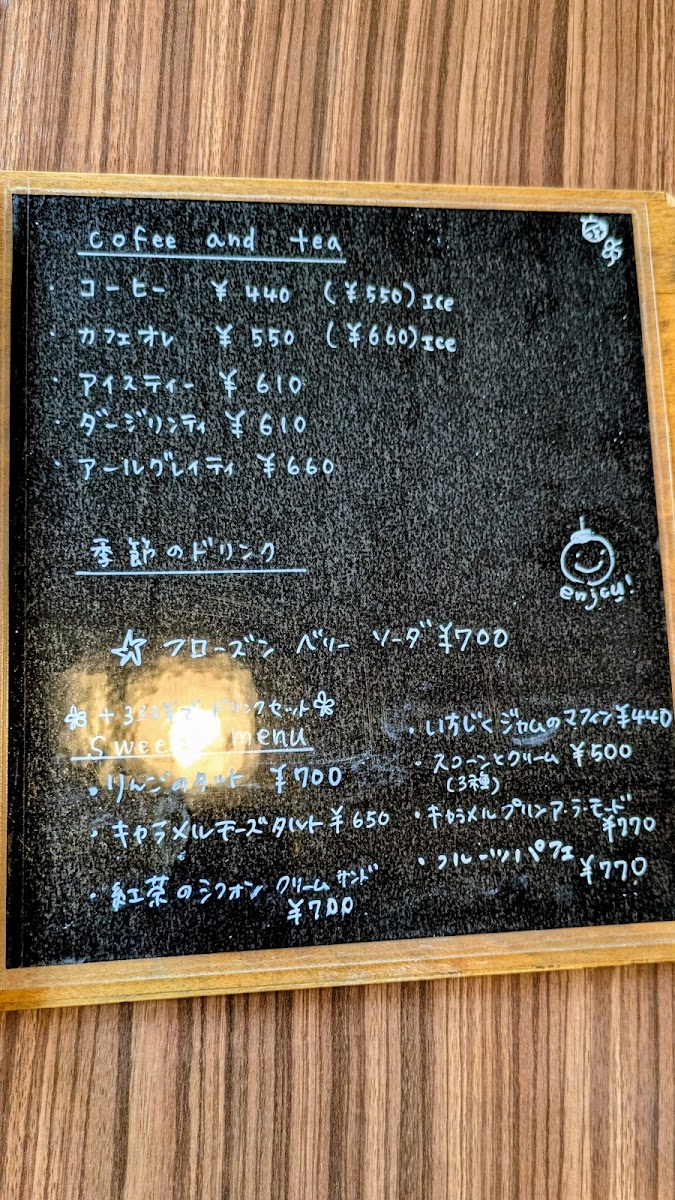 cofee and tea
・コーヒー ¥440 (¥550)Ice
・カフェオレ ¥550 (¥660)Ice
・アイスティー ¥610
・ダージリンティ ¥610
・アールグレイティ ¥660
季節のドリンク
☆ フローズン ベリー ソーダ ¥700
enjoy!
+330 ドリンクセット
Sweet menu
・りんごのタルト ¥700
・キャラメルチーズタルト ¥650
・紅茶のシフォン クリームサンド
¥700
・いちじくジャムのマフィン ¥440
・スコーンとクリーム ¥500
(3種)
・キャラメルプリンア・ラ・モード
¥770
・フルーツパフェ
¥770